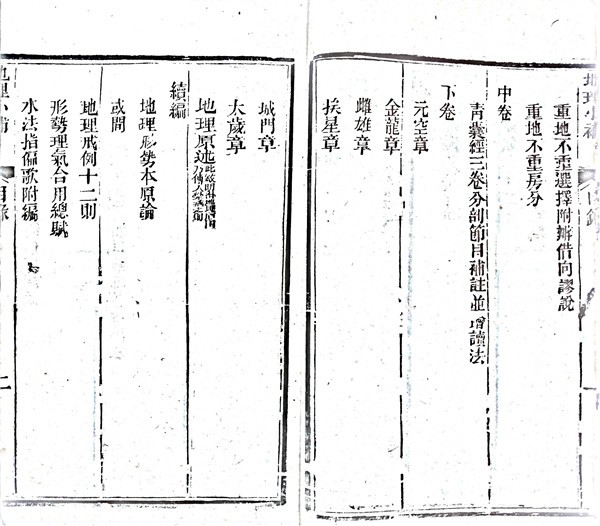 地理小補
目錄
重地不重選擇附辨借向謬說
重地不重房分
中卷
青囊經三卷分剖節目補註並增讀法
下卷
元空章
金龍章
雌雄章
挨星章
城門章
太歲章
地理原述
續編
地理形勢本原論
或問
地理戒例十二則
形勢理氣合用總賦
水法指偏歌附編
地理小補
目錄
二